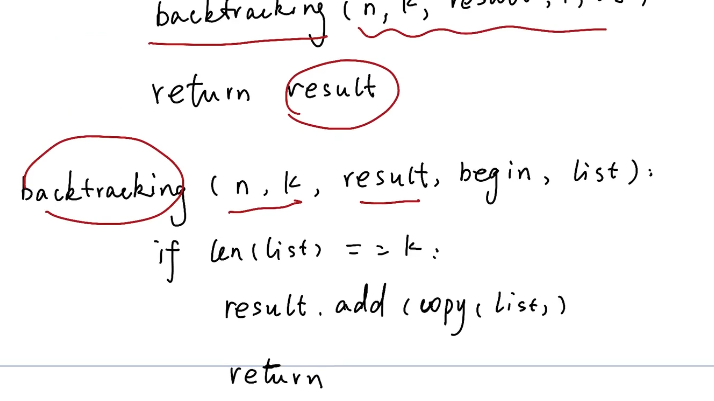 backtracking (n, k,
return result
backtracking (n, k, result, begin, list):
if len(list) == k:
result.add(copy(list))
return